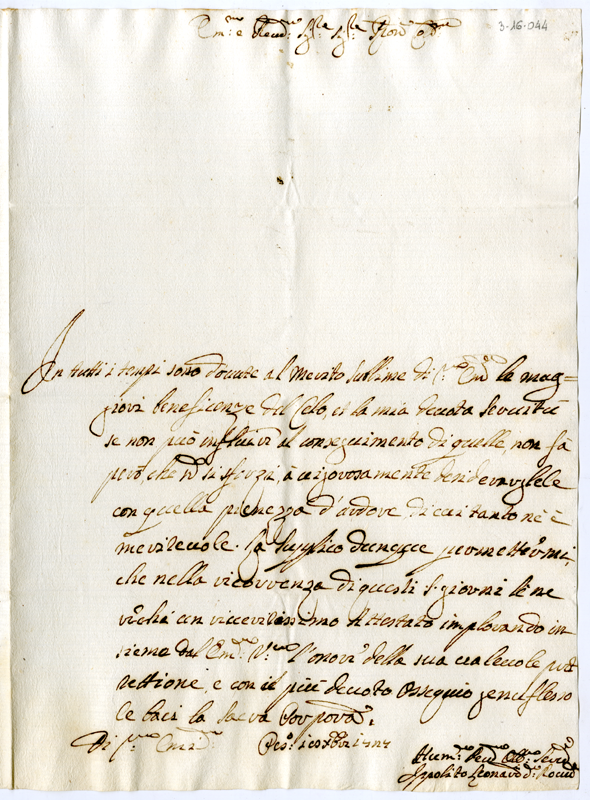 Em.mo e Reu.mo Sig.re Sig.re
3-16-044
In tutti i tempi sono douute al Merito sublime di V.ra Em.za le mag=
giori beneficenze del Celo, et la mia deuota seruitù
se non può influirui al conseguimento di quelle, non fà
però, che si sforzi, à uigorosamente desiderarglele
con quella pienezza d'ardore di cui tanto nè è
meriteuole. La supplico dunque permettermi,
che nella ricorrenza di questi S. giorni le ne
un riceritissimo Attestato implorando in
sieme dal Em.mo l'onor della sua ualeuole pro
tettione, e con il più deuoto Ossequio genuflesso
le baci la Sacra Porpora.
Di V.ra Em.za
Hum.mo Deu.mo Seru.re
Ippolito Leonardo